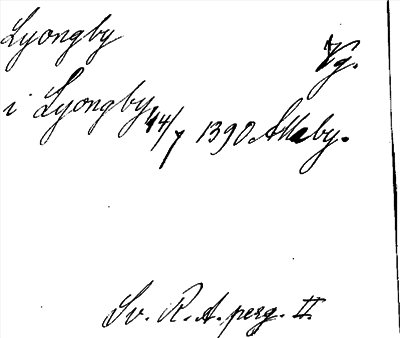 Lyongby Vg.
i Lyongby 14/7 1390 Alleby.
Sv. R. A. perg. II.